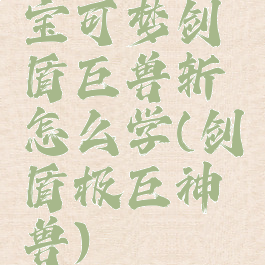 宝可梦剑
盾巨兽斩
怎么学(剑
盾极巨神
兽)